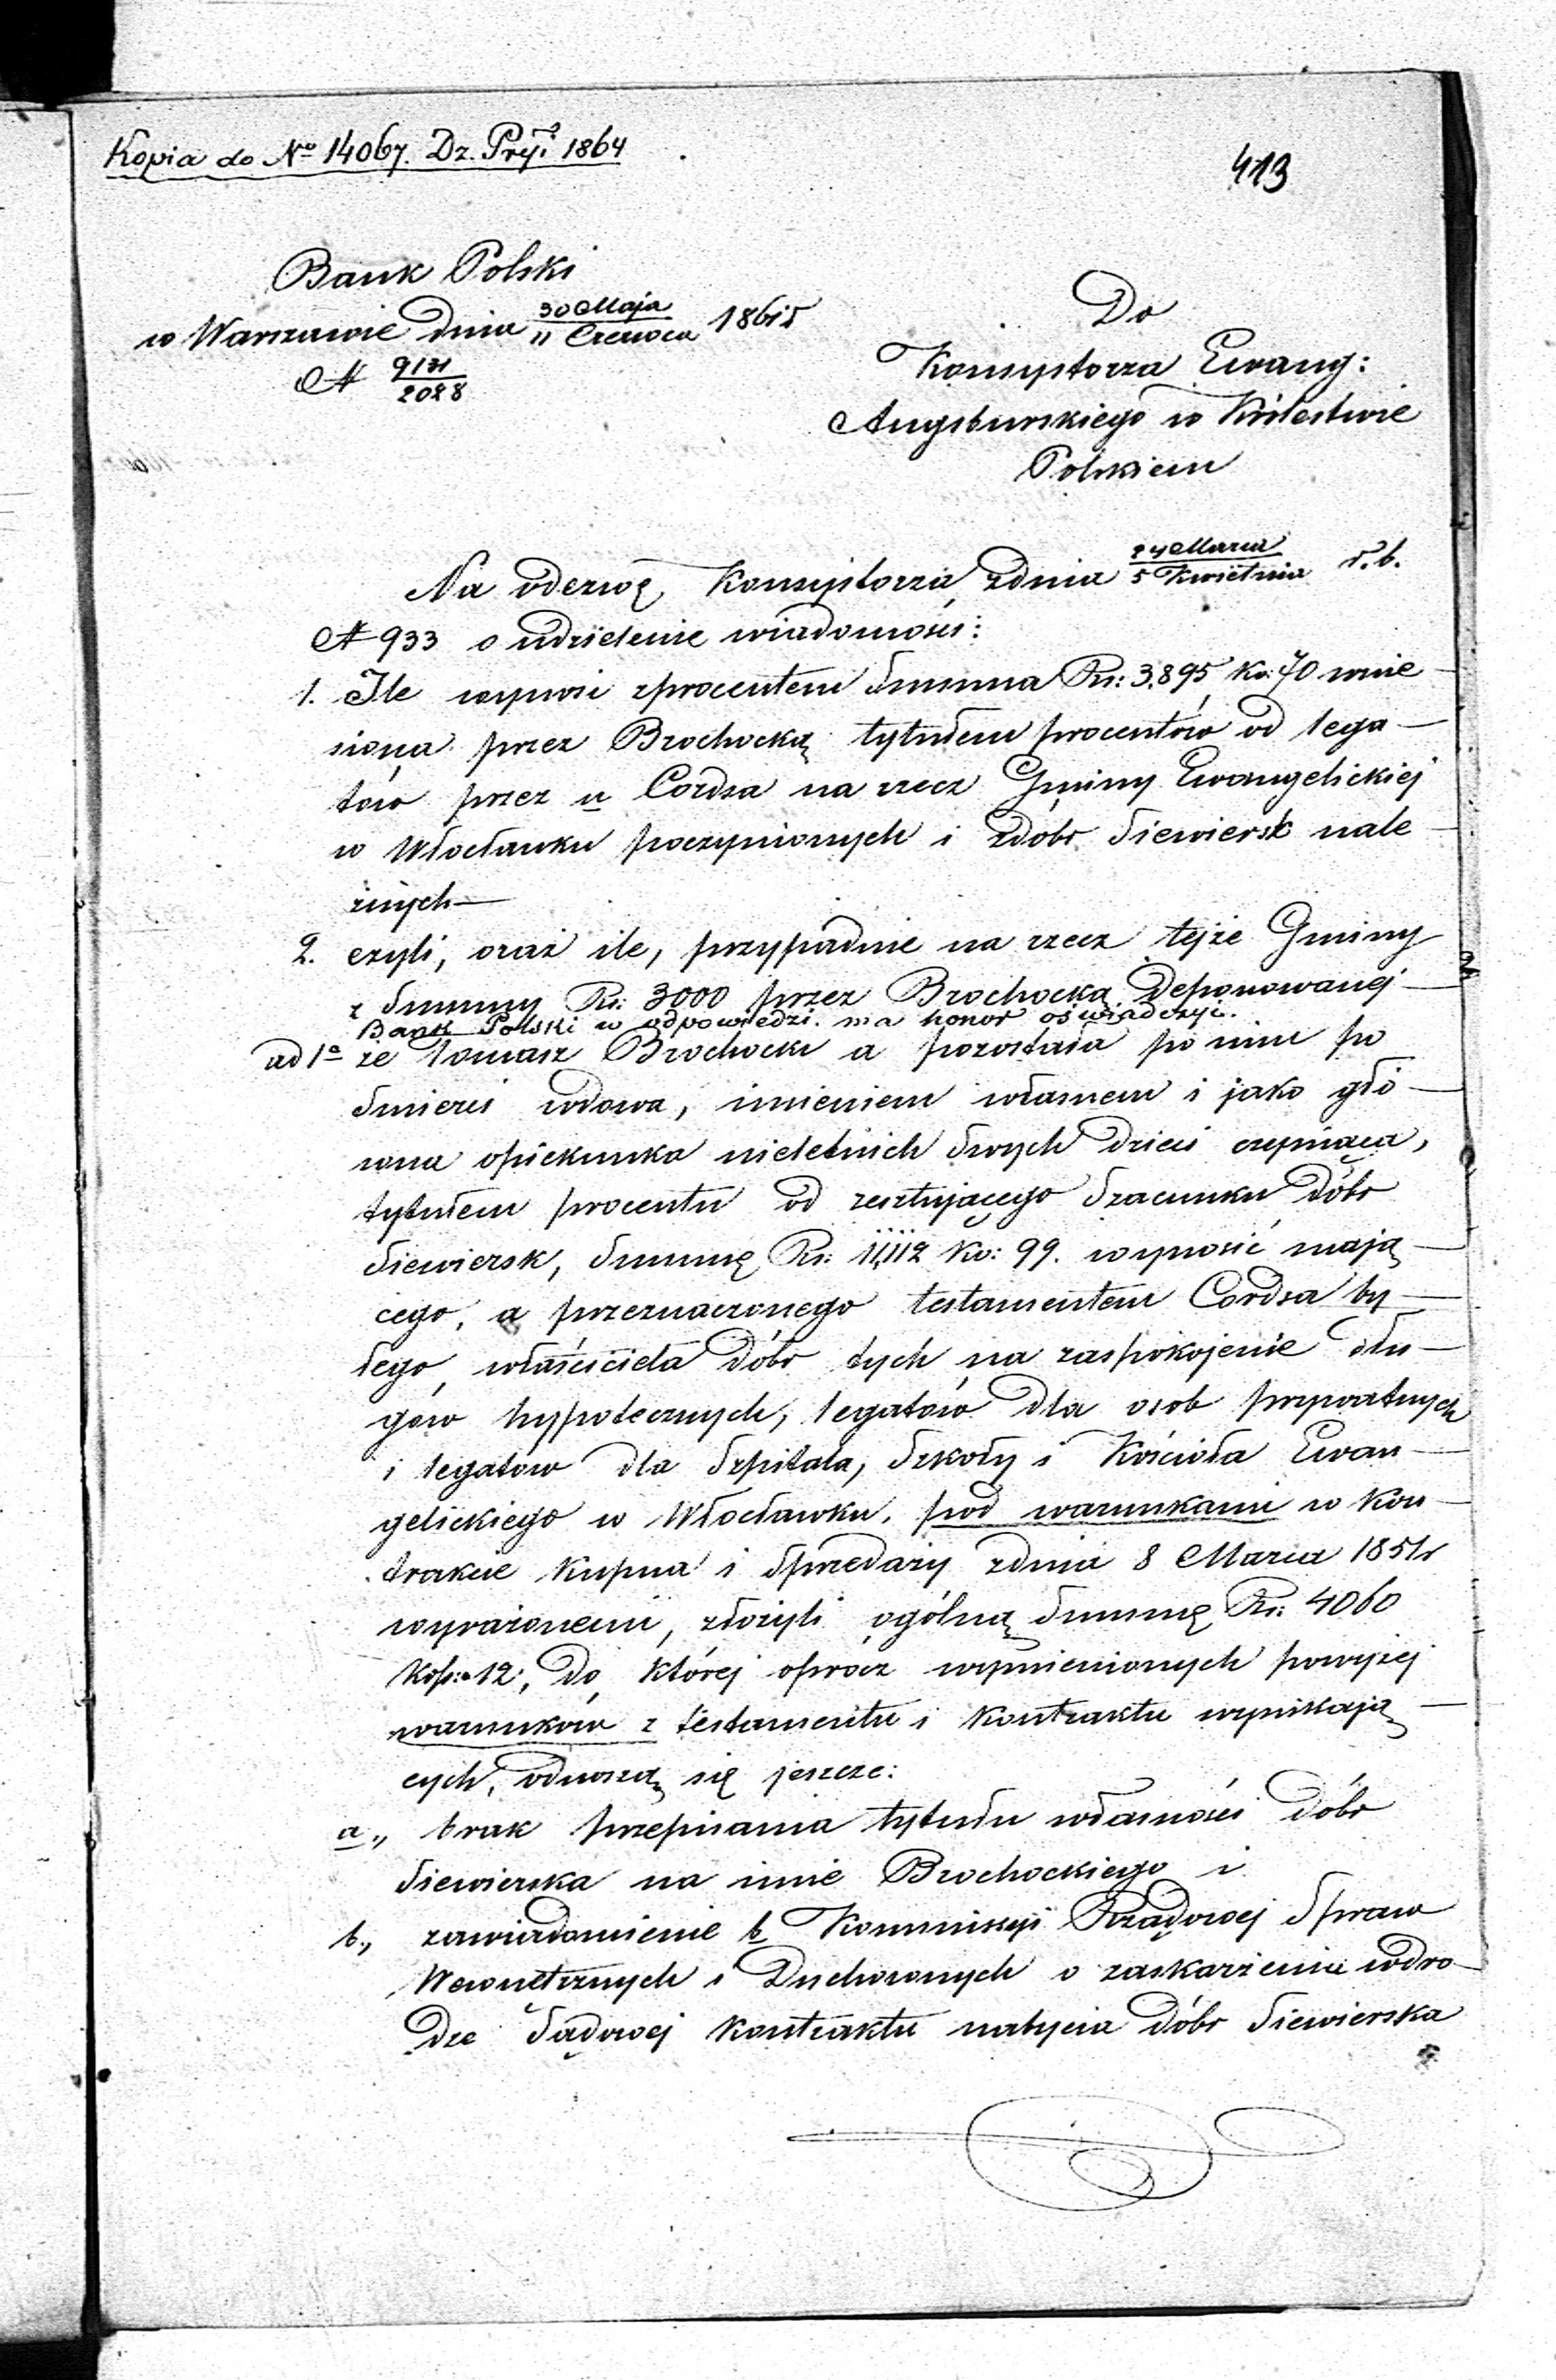 Kopia do No 14067. Dz. Pryi 1864
413
Bank Polski
w Warszawie dnia 30 Maja / 11 Czerwca 1865
N 9131 / 2028
Do
Konsystorza Ewang:
Augsburskiego w Królestwie
Polskiem
Na odezwę Konsystorza zdnia 24 Marca / 5 Kwietnia r.b.
N 933 o udzielenie wiadomości:
1. Ile wynosi zprocentem Summa Rs: 3.895 Ko: 70 wnie-
siona przez Brochocką tytułem procentów od lega-
tów przez n Cordsa na rzecz Gminy Ewangelickiej
w Włocławku poczynionych i zdobr Siewiersk nale-
żnych—
2. czyli, oraz ile, przypadnie na rzecz tejże Gminy
z Summy Rs: 3000 przez Brochocką Deponowanej—
Bank Polski w odpowiedzi ma honor oświadczyć.
ad 1o że Tomasz Brochocki a pozostała po nim po
Śmierci wdowa, imieniem własnem i jako głó-
wna opiekunka nieletnich Swych Dzieci czyniąca,
tytułem procentu od resztującego Szacunku dóbr
Siewiersk, Summę Rs: 11,112 Ko: 99. wynosić mają-
cego, a przeznaczonego testamentem Cordsa by-
łego właściciela dóbr tych na zaspokojenie dłu-
gów hypotecznych, legatów dla osob prywatnych
i legatow dla Szpitala, Szkoły i Kościoła Ewan-
gelickiego w Włocławku, pod warunkami w Kon-
trakcie Kupna i Sprzedaży zdnia 8 Marca 1851r
wyrażonemi, złożyli ogólną Summę Rs: 4060
Kop: 12, do której oprócz wymienionych powyżej
warunków z testamentu i Kontraktu wynikają-
cych, odnoszą się jeszcze:
a., brak przepisania tytułu własności dóbr
Siewierska na imie Brochockiego i
b., zawiadomienie b Kommissyi Rządowej Spraw
Wewnętrznych i Duchownych o zaskarżeniu wdro-
dze Sądowej Kontraktu nabycia dóbr Siewierska